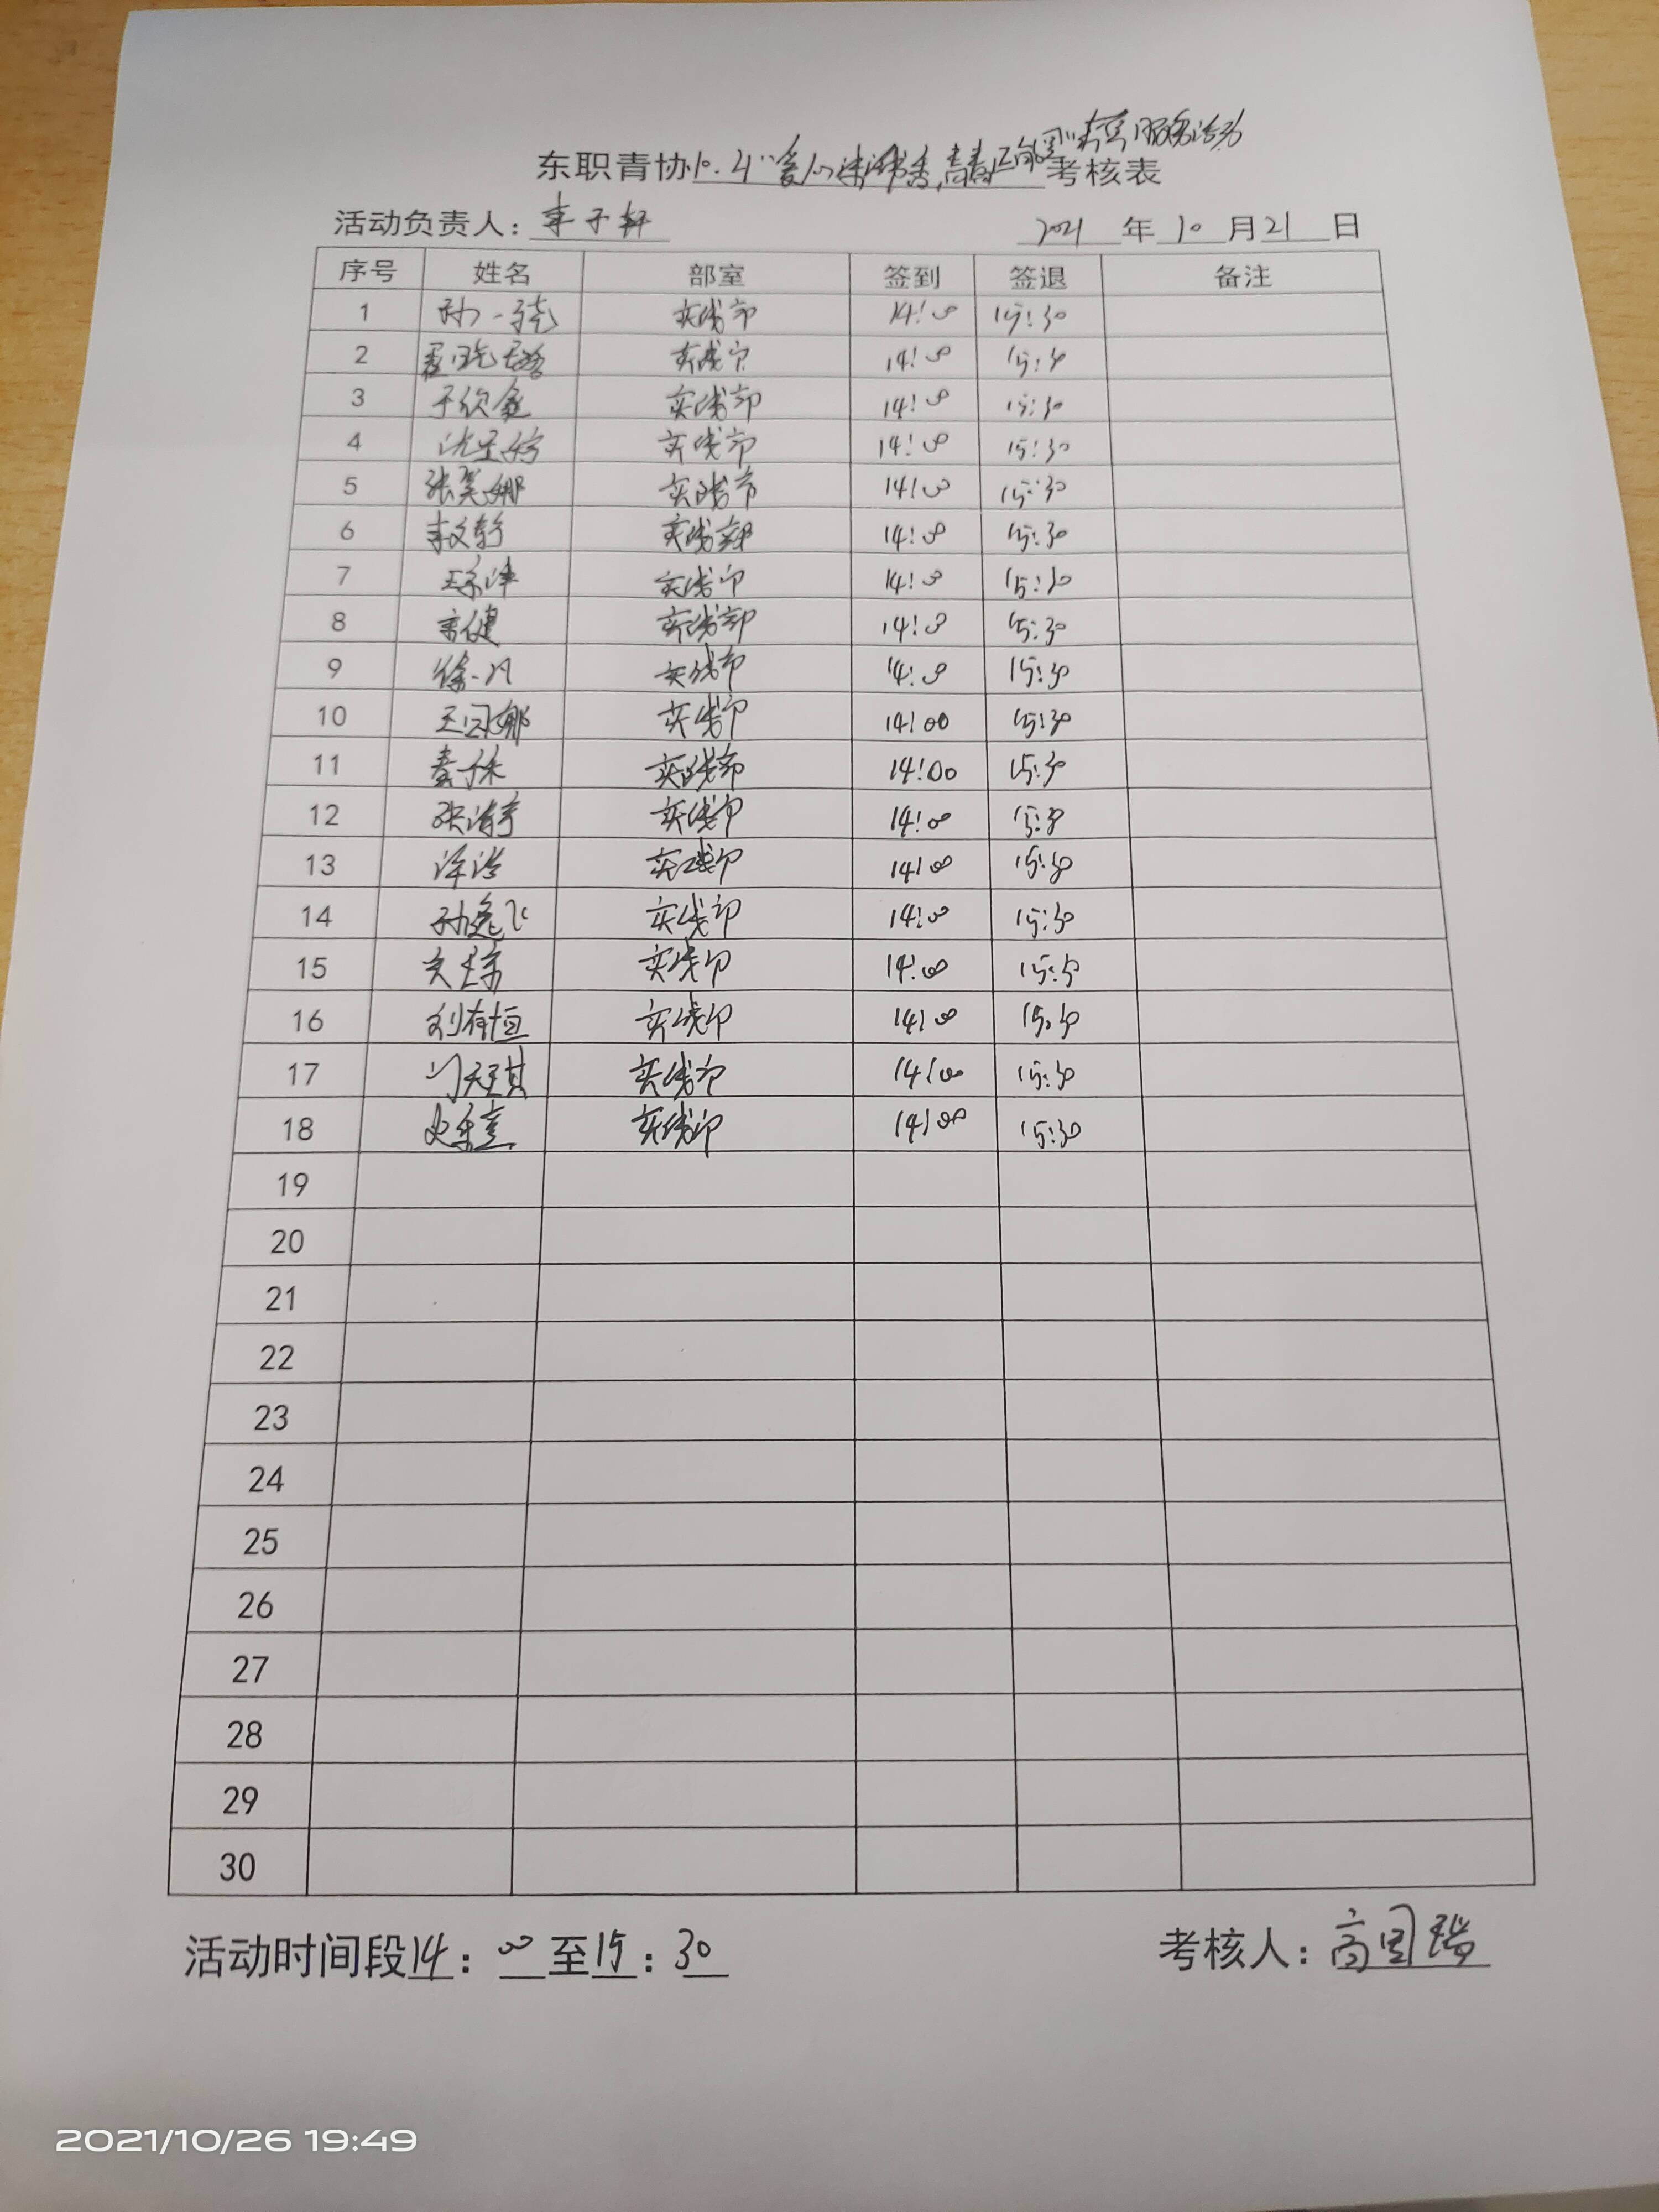 东职青协10.21“爱心 书香,青春正 ”志愿服务活动考核表
活动负责人：李子轩 2021年10月21日
序号 姓名 部室 签到 签退 备注
1 孙一 实践部 14:00 15:30
2 实践部 14:00 15:30
3 于欣鑫 实践部 14:00 15:30
4 沈 婷 实践部 14:00 15:30
5 张美娜 实践部 14:00 15:30
6 李文轩 实践部 14:00 15:30
7 王 实践部 14:00 15:30
8 宋健 实践部 14:00 15:30
9 徐一凡 实践部 14:00 15:30
10 王 娜 实践部 14:00 15:30
11 秦子 实践部 14:00 15:30
12 张 宇 实践部 14:00 15:30
13 实践部 14:00 15:30
14 孙逸飞 实践部 14:00 15:30
15 实践部 14:00 15:30
16 刘有恒 实践部 14:00 15:30
17 门天琪 实践部 14:00 15:30
18 史乐童 实践部 14:00 15:30
19
20
21
22
23
24
25
26
27
28
29
30
活动时间段14：00至15：30 考核人：高国瑞
2021/10/26 19:49